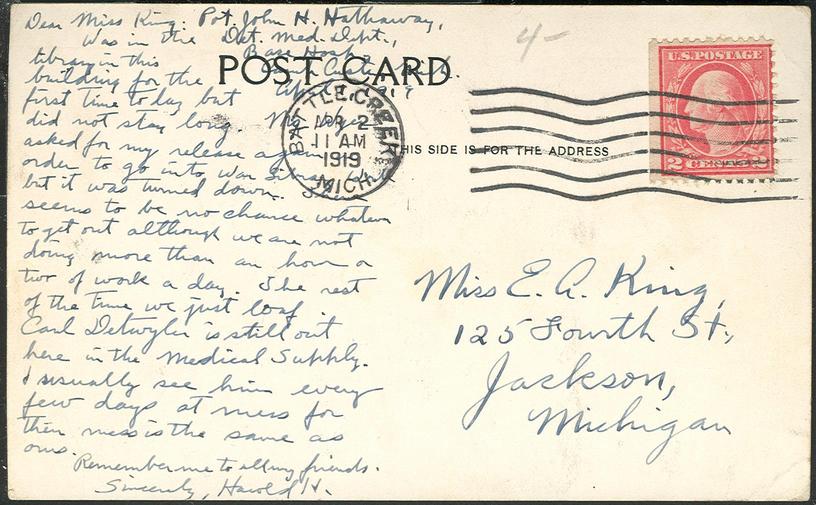 Dear Miss King: Pvt. John H. Hathaway,
Was in the Det. Med. Dept.,
library in this Base Hosp.
building for the
first time today but
did not stay long.
asked for my release again
order to go into War
but it was turned down.
seems to be no chance whatever
to get out although we are not
doing more than an hour or
two of work a day. The rest
of the time we just loaf.
Carl Detwyler is still out
here in the Medical Supply.
I usually see him every
few days at mess for
their mess is the same as
ours.
Remember me to all my friends.
Sincerely, Harold H.
POST CARD
THIS SIDE IS FOR THE ADDRESS
BATTLE CREEK
APR 2
11 AM
1919
MICH.
4-
U.S. POSTAGE
2 CENTS 2
Miss E. A. King,
125 Fourth St.,
Jackson,
Michigan